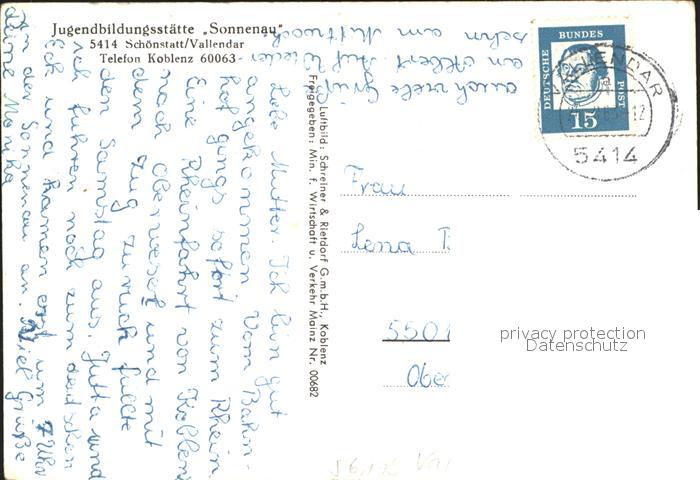 Jugendbildungsstätte „Sonnenau"
5414 Schönstatt/Vallendar
Telefon Koblenz 60063
Liebe Mutter. Ich bin gut
angekommen. Vom Bahn-
hof gings sofort zum Rhein
Eine Rheinfahrt von Koblenz
nach Oberwesel und mit
dem Zug zurück füllte
den Samstag aus. Jutta und
ich fuhren noch zum deutschen
Eck und kamen erst um 7 Uhr
in der Sonnenau an. Viel Grüße
Deine Monika
auch viele Grüße
an Albert. Auf Wieder
sehn am Mittwoch
Luftbild: Schreiner & Rietdorf G.m.b.H., Koblenz
Freigegeben: Min. f. Wirtschaft u. Verkehr Mainz Nr. 00682
DEUTSCHE BUNDES POST
15
VALLENDAR
5414
Frau
Lena B
5501
Ober
privacy protection
Datenschutz